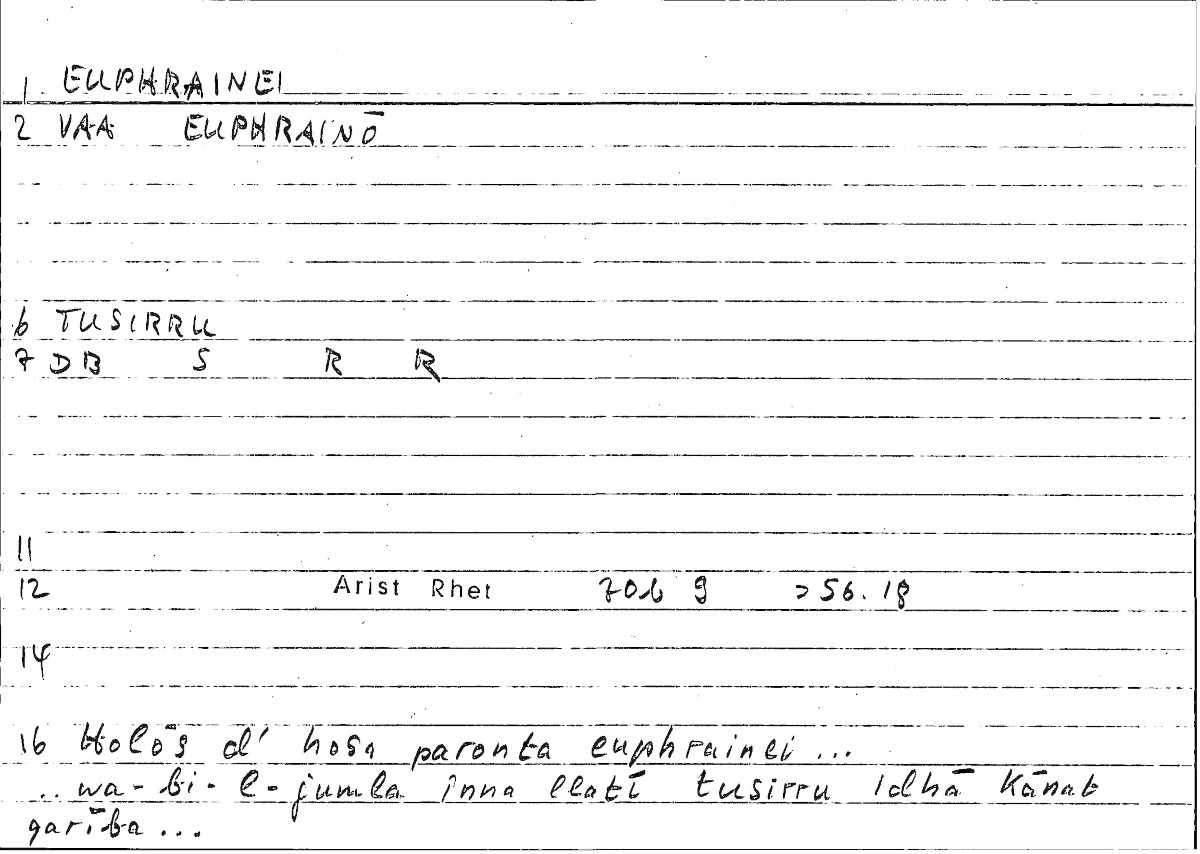 1 EUPHRAINEI
2 VAA EUPHRAINŌ
6 TUSIRRU
7 DB S R R
11
12 Arist Rhet 70b 9 >56.18
14
16 Holōs d' hosa paronta euphrainei ...
.. wa-bi-l-jumla inna llatī tusirru idhā kānat
garība ...